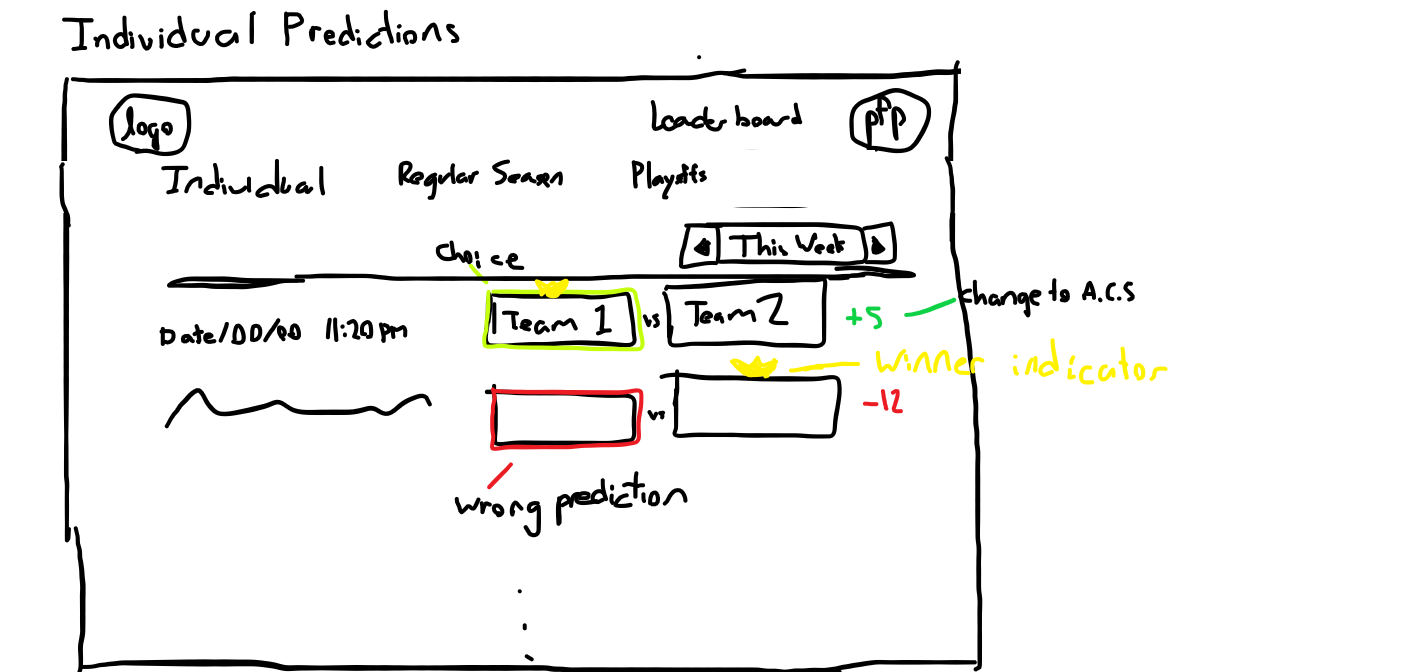 Individual Predictions
logo
Leaderboard
pfp
Individual
Regular Season
Playoffs
This Week
Choice
Team 1
vs
Team 2
+5
change to A.C.S
Date/DD/DD 11:20pm
winner indicator
vs
-12
wrong prediction